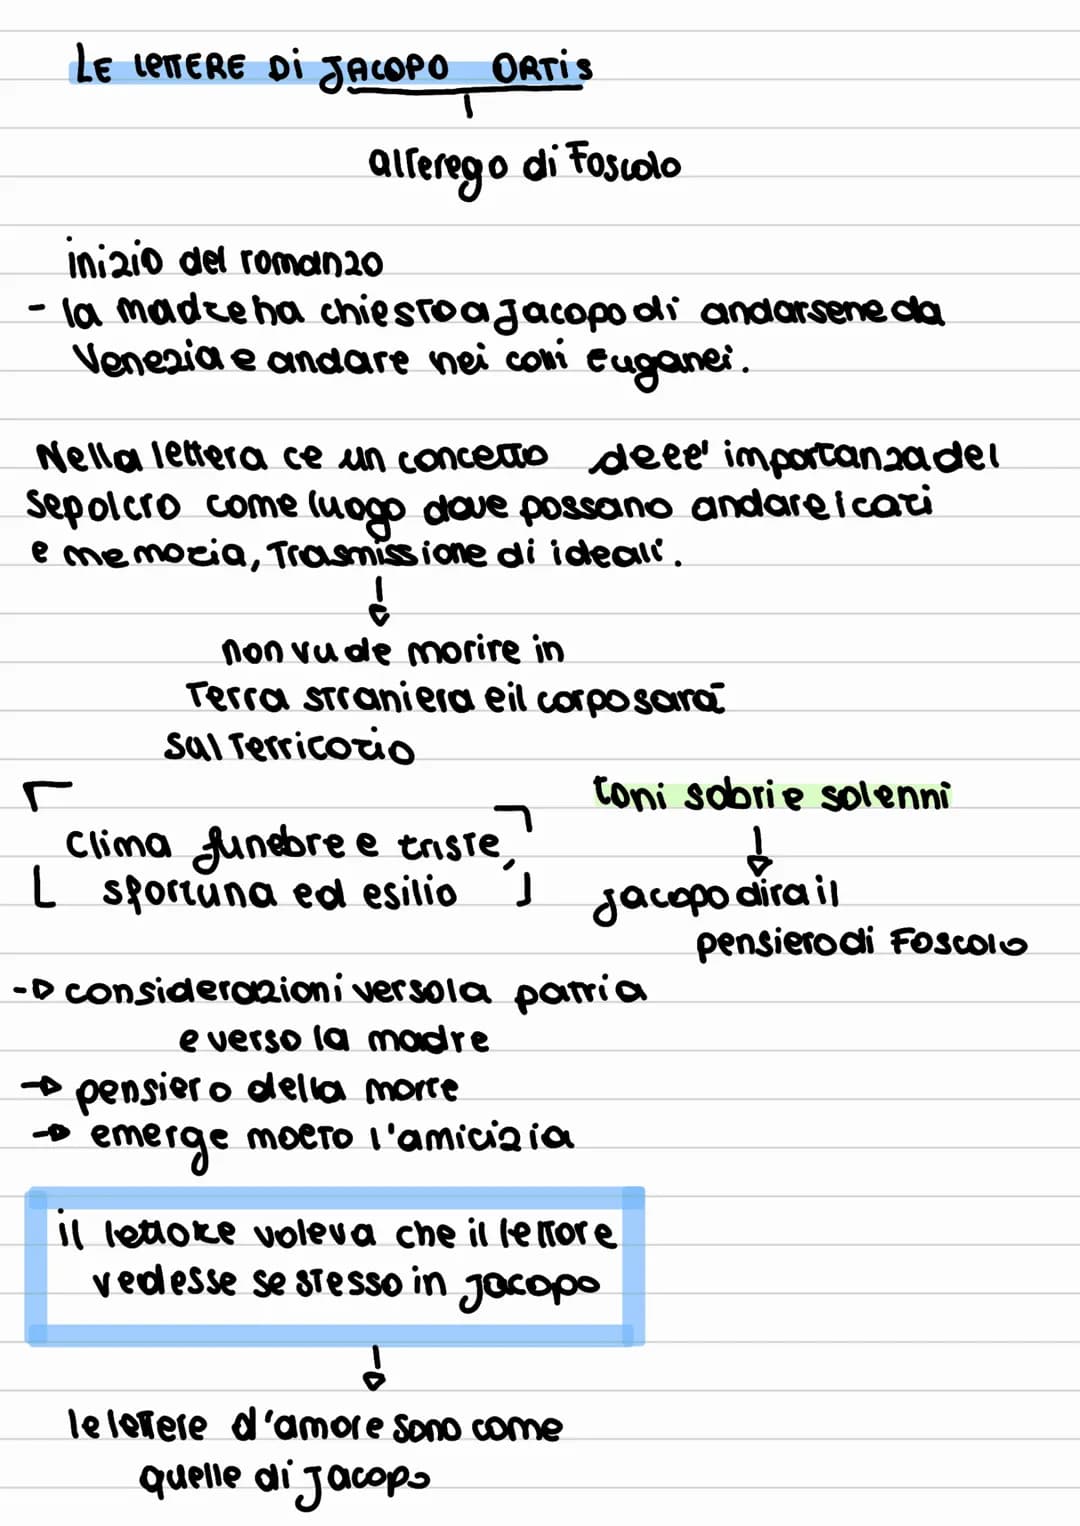 LE LETTERE Di JACOPO ORTiS
alterego di Foscolo
inizio del romanzo
- la madre ha chiesto a Jacopo di andarsene da
Venezia e andare nei colli Euganei.
Nella lettera ce un concetto dell' importanza del
sepolcro come luogo dove possano andare i cari
e memoria, Trasmissione di ideali.
non vude morire in
Terra straniera e il corpo sarà
sul Territorio
toni sobri e solenni
Clima funebre e triste,
sfortuna ed esilio
Jacopo dira il
pensiero di Foscolo
-> considerazioni verso la patria
e verso la madre
-> pensiero della morte
-> emerge molto l'amicizia
il lettore voleva che il lettore
vedesse se stesso in Jacopo
le lettere d'amore sono come
quelle di Jacopo